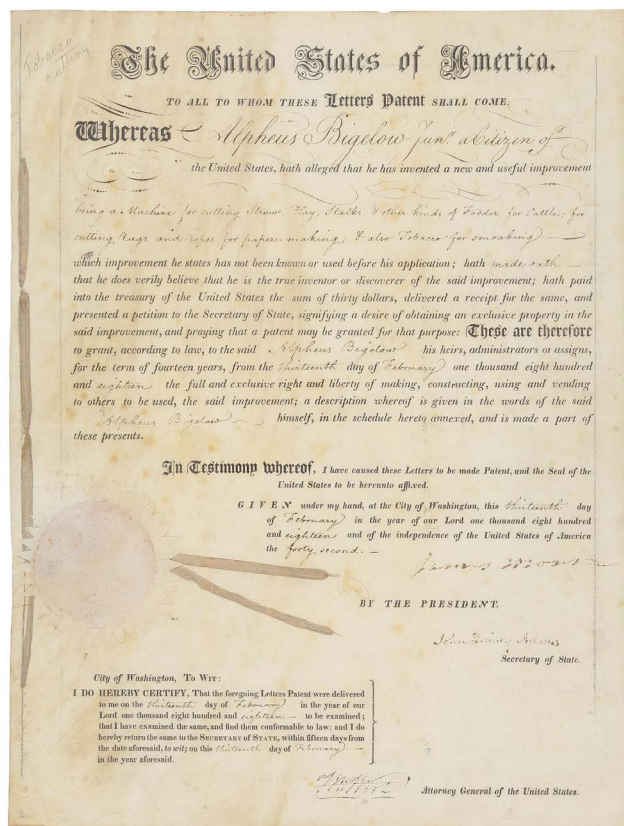 Tobacco
cutting
The United States of America.
TO ALL TO WHOM THESE Letters Patent SHALL COME:
Whereas Alpheus Bigelow Junr. a Citizen of
the United States, hath alleged that he has invented a new and useful improvement
being a Machine for cutting Straw, Hay, Stalks, & other kinds of Fodder for Cattle; for
cutting rags and ropes for paper-making; & also Tobacco for smoaking
which improvement he states has not been known or used before his application; hath made oath
that he does verily believe that he is the true inventor or discoverer of the said improvement; hath paid
into the treasury of the United States the sum of thirty dollars, delivered a receipt for the same, and
presented a petition to the Secretary of State, signifying a desire of obtaining an exclusive property in the
said improvement, and praying that a patent may be granted for that purpose: These are therefore
to grant, according to law, to the said Alpheus Bigelow his heirs, administrators or assigns,
for the term of fourteen years, from the thirteenth day of February one thousand eight hundred
and eighteen the full and exclusive right and liberty of making, constructing, using and vending
to others to be used, the said improvement; a description whereof is given in the words of the said
Alpheus Bigelow himself, in the schedule hereto annexed, and is made a part of
these presents.
In Testimony whereof, I have caused these Letters to be made Patent, and the Seal of the
United States to be hereunto affixed.
GIVEN under my hand, at the City of Washington, this thirteenth day
of February in the year of our Lord one thousand eight hundred
and eighteen and of the independence of the United States of America
the forty second.
James Monroe
BY THE PRESIDENT.
John Quincy Adams
Secretary of State.
City of Washington, To Wit:
I DO HEREBY CERTIFY, That the foregoing Letters Patent were delivered
to me on the thirteenth day of February in the year of our
Lord one thousand eight hundred and eighteen to be examined;
that I have examined the same, and find them conformable to law: and I do
hereby return the same to the SECRETARY OF STATE, within fifteen days from
the date aforesaid, to wit; on this thirteenth day of February
in the year aforesaid.
Attorney General of the United States.